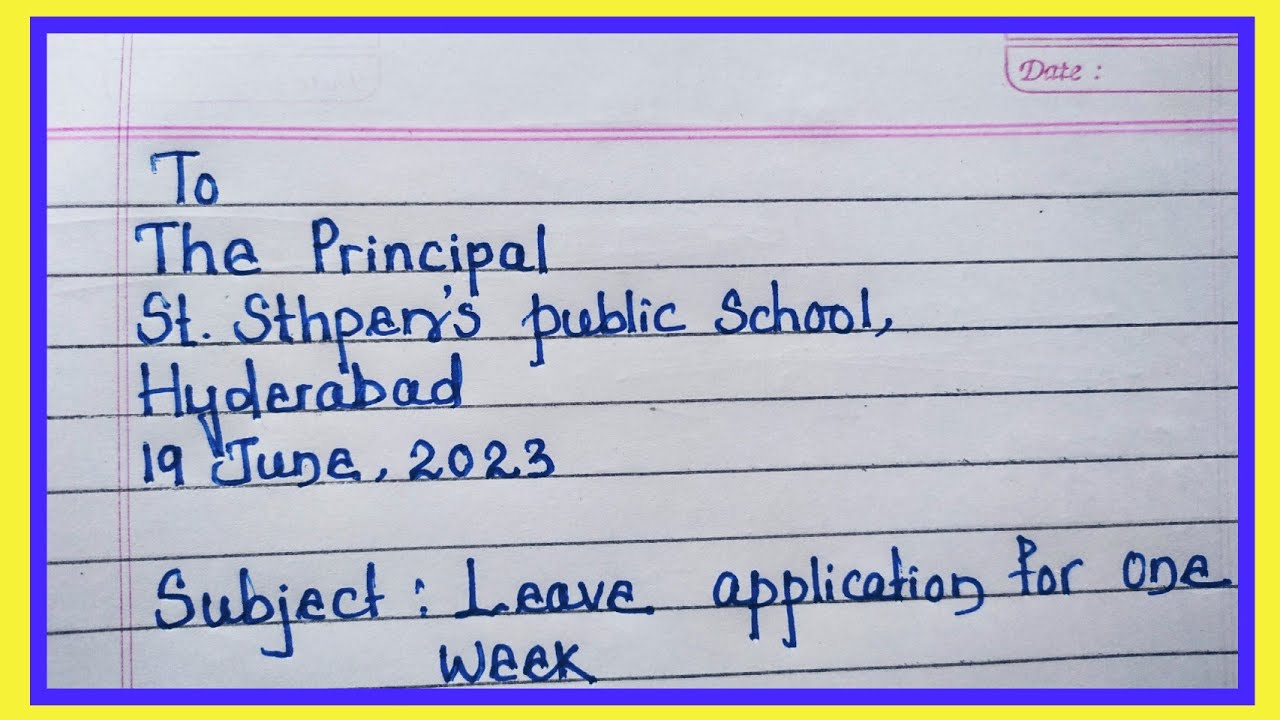 Date :
To
The Principal
St. Sthpen's public school,
Hyderabad
19 June, 2023
Subject : Leave application for one
week